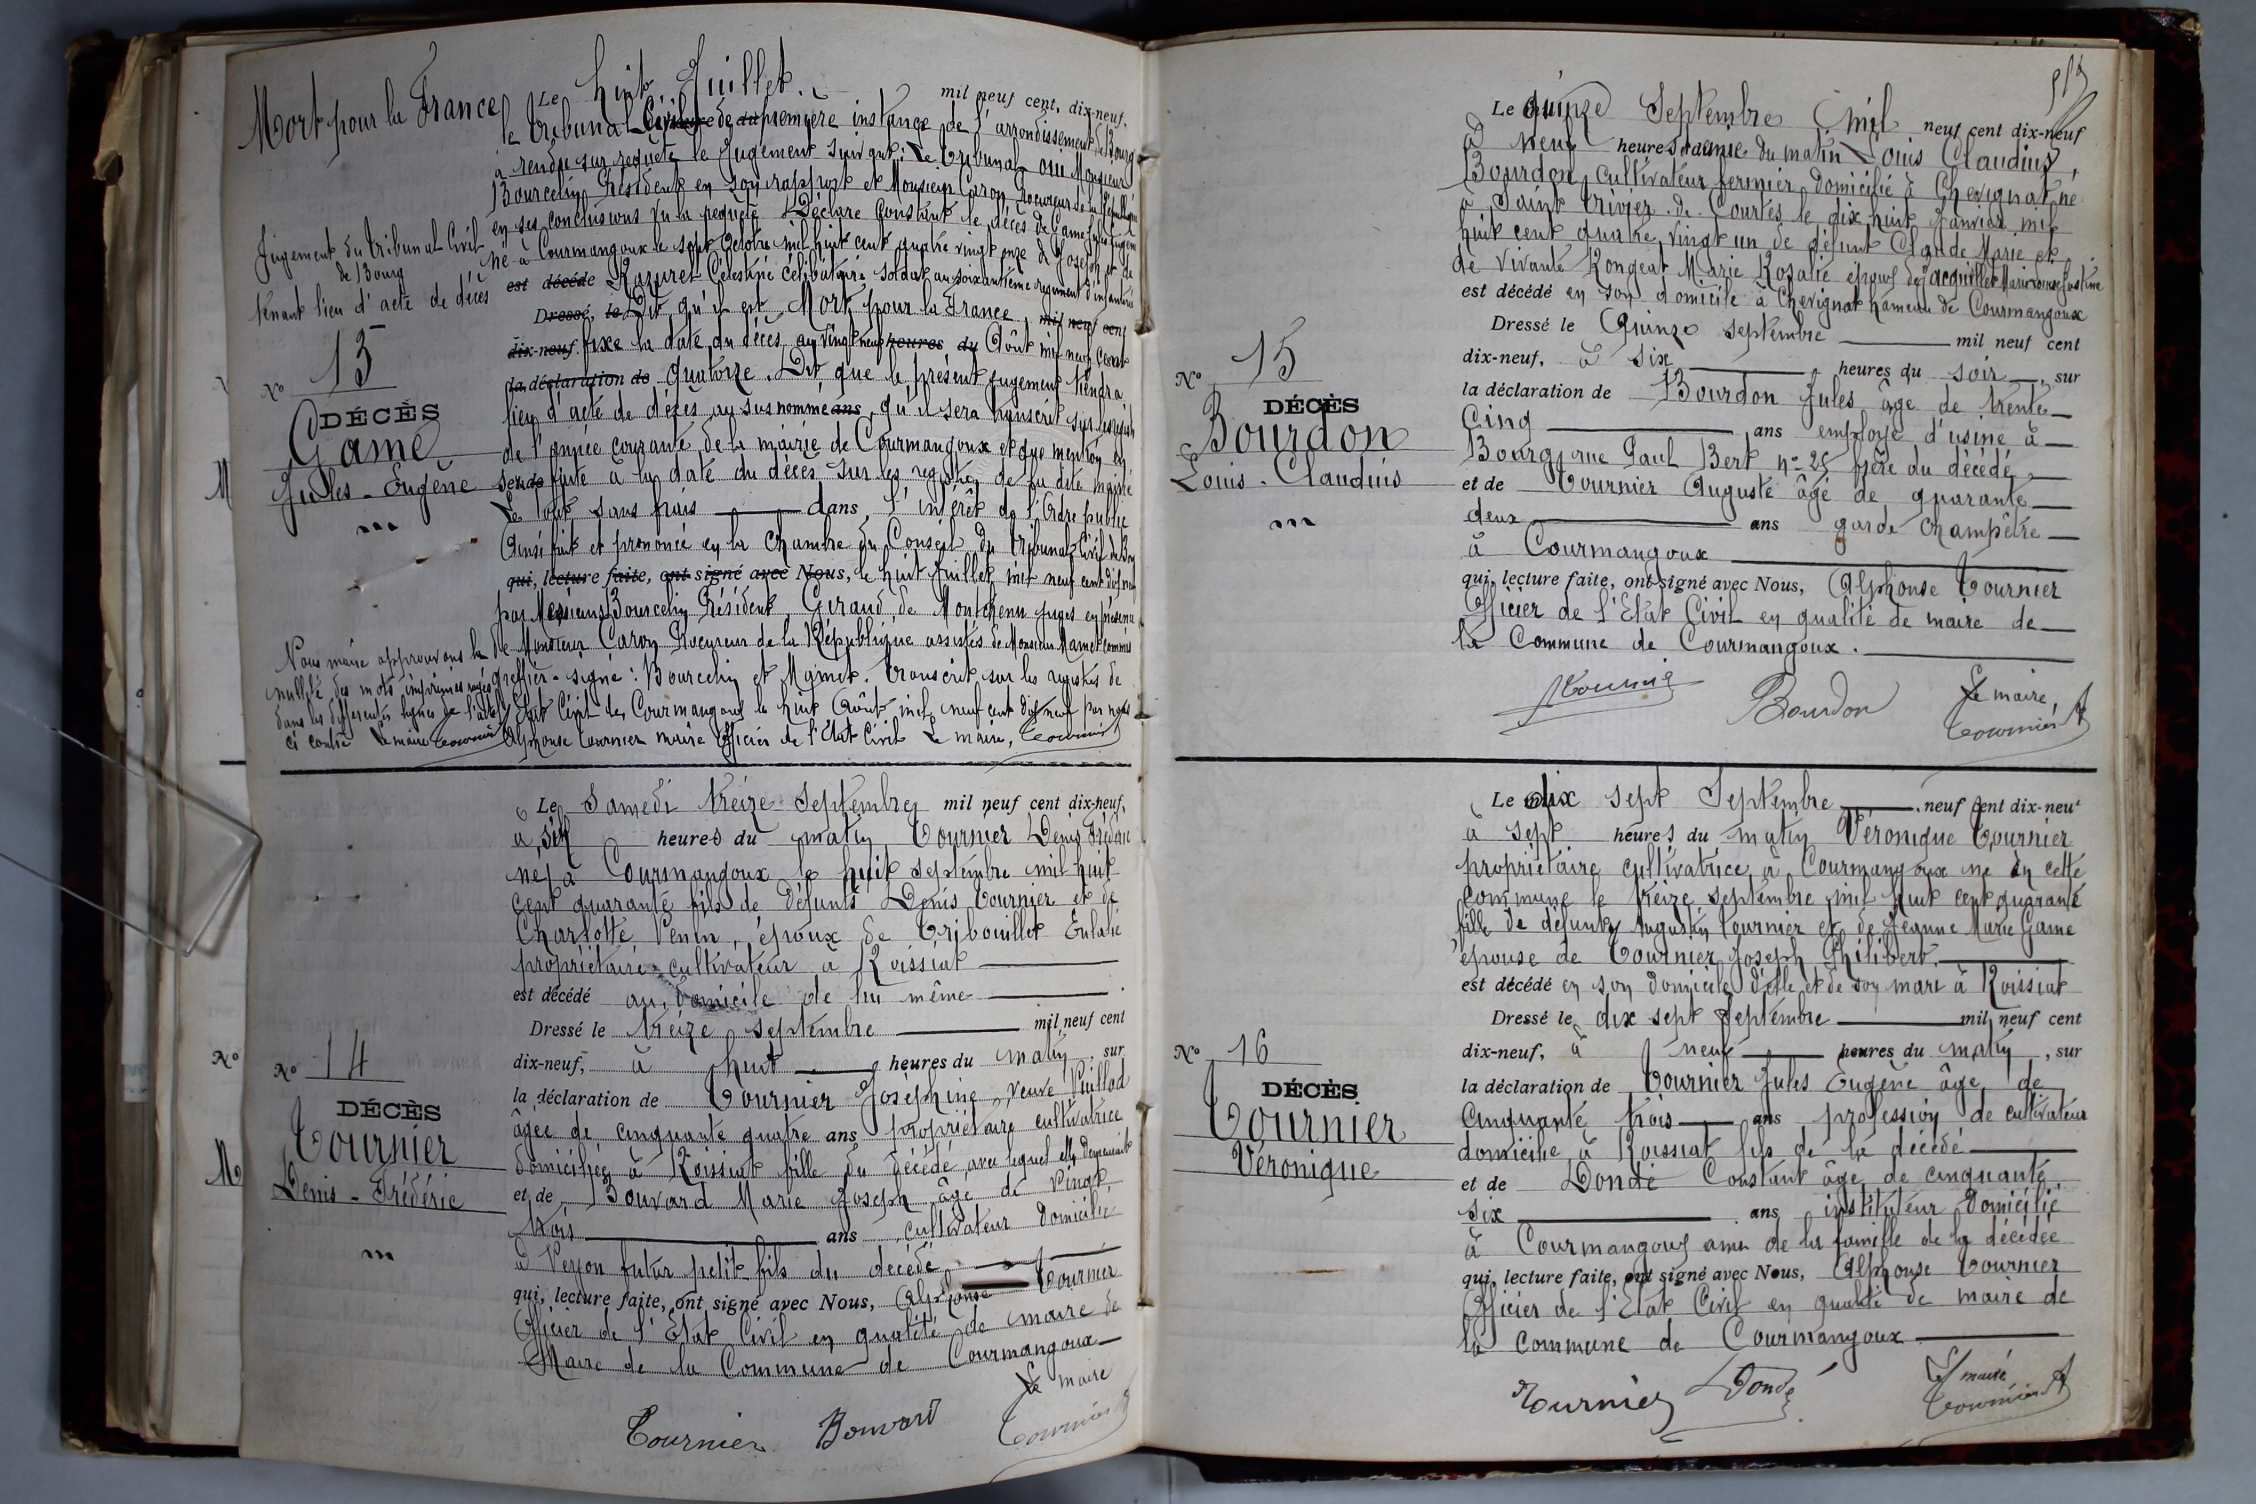 Mort pour la France
Jugement du Tribunal Civil
de Bourg
tenant lieu d'acte de décès
No 13
DÉCÈS
Game
Jules - Eugène
Nous maire approuvons la
nullité des mots imprimés rayés
dans les différentes lignes de l'acte
ci contre Le maire Tournier
Le huit Juillet mil neuf cent dix-neuf,
le Tribunal Civil de première instance de l'arrondissement de Bourg
à rendu sur requête le Jugement suivant : Le Tribunal oui Monsieur
Bourcelin Président en son rapport et Monsieur Caron Procureur de la République
en ses conclusions Vu la requête Déclare constant le décès de Game Jules Eugène
né à Courmangoux le sept Octobre mil huit cent quatre vingt onze de Joseph et de
est décédé Razurel Célestine célibataire soldat au soixantième régiment d'infanterie
Dressé, le Dit qu'il est Mort pour la France, mil neuf cent
dix-neuf. fixe la date du décès au vingt neuf heures du Août mil neuf cent
la déclaration de quatorze. Dit que le présent jugement tiendra
lieu d'acte de décès au sus nommé ans, qu'il sera transcrit sur les registres
de l'année courante de la mairie de Courmangoux et que mention en
sera faite à la date du décès sur les registres de la dite mairie
Le tout sans frais dans l'intérêt de l'Ordre public
Ainsi fait et prononcé en la Chambre du Conseil du Tribunal Civil de Bourg
qui, lecture faite, ont signé avec Nous, le huit Juillet mil neuf cent dix neuf
par Messieurs Bourcelin Président, Giraud de Montchenu juges en présence
de Monsieur Caron Procureur de la République assistés de Monsieur Mamet commis
greffier - signé : Bourcelin et Mamet. Transcrit sur les registres de
l'Etat Civil de Courmangoux le huit Août mil neuf cent dix neuf par nous
Alphonse Tournier maire Officier de l'Etat Civil Le maire, Tournier
No 14
DÉCÈS
Tournier
Denis - Frédéric
Le Samedi treize Septembre mil neuf cent dix-neuf,
à six heures du matin Tournier Denis Frédéric
né à Courmangoux le huit septembre mil huit
cent quarante fils de défunts Denis Tournier et de
Charlotte Venin, époux de Tribouillet Eulalie
propriétaire cultivateur à Roissiat
est décédé au domicile de lui même
Dressé le treize septembre mil neuf cent
dix-neuf, à huit heures du matin, sur
la déclaration de Tournier Joséphine veuve Vuillod
âgée de cinquante quatre ans propriétaire cultivatrice
domiciliée à Roissiat fille du décédé avec lequel elle demeurait
et de Bouvard Marie Joseph âgé de vingt
trois ans cultivateur domicilié
à Verjon futur petit fils du décédé
qui, lecture faite, ont signé avec Nous, Alphonse Tournier
Officier de l'Etat Civil en qualité de maire de
Maire de la Commune de Courmangoux
Le maire
Tournier Bouvard Tournier A
Le Quinze Septembre mil neuf cent dix-neuf
à neuf heures demie du matin Louis Claudius,
Bourdon, cultivateur fermier domicilié à Chevignat né
à Saint Trivier de Courtes le dix huit Janvier mil
huit cent quatre vingt un de défunt Claude Marie et
de vivante Rongeat Marie Rosalie époux de Jacquillet Marie Louise Justine
est décédé en son domicile à Chevignat hameau de Courmangoux
Dressé le Quinze septembre mil neuf cent
dix-neuf, à six heures du soir, sur
la déclaration de Bourdon Jules âgé de trente
Cinq ans employé d'usine à
Bourg rue Paul Bert no 25 frère du décédé
et de Tournier Auguste âgé de quarante
deux ans garde champêtre
à Courmangoux
qui, lecture faite, ont signé avec Nous, Alphonse Tournier
Officier de l'Etat Civil en qualité de maire de
la Commune de Courmangoux.
Le maire
Tournier Bourdon Tournier A
No 15
DÉCÈS
Bourdon
Louis - Claudius
Le dix sept Septembre neuf cent dix-neuf
à sept heures du matin Véronique Tournier
propriétaire cultivatrice à Courmangoux né en cette
commune le treize septembre mil huit cent quarante
fille de défunts Augustin Tournier et de Jeanne Marie Game
épouse de Tournier Joseph Philibert.
est décédé en son domicile d'elle et de son mari à Roissiat
Dressé le dix sept Septembre mil neuf cent
dix-neuf, à neuf heures du matin, sur
la déclaration de Tournier Jules Eugène âgé de
Cinquante trois ans profession de cultivateur
domicilié à Roissiat fils de la décédé
et de Dondé Constant âgé de cinquante
six ans instituteur domicilié
à Courmangoux ami de la famille de la décédée
qui, lecture faite, ont signé avec Nous, Alphonse Tournier
Officier de l'Etat Civil en qualité de maire de
la commune de Courmangoux
Le maire
Tournier Dondé Tournier A
No 16
DÉCÈS
Tournier
Véronique